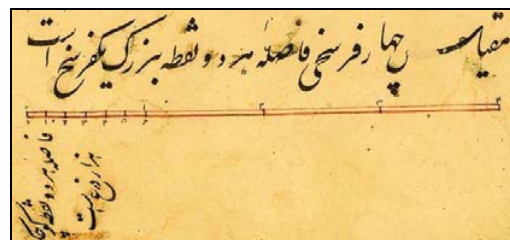 مقیاس چهار فرسخی فاصله هر دو نقطه بزرک یکفرسخ است
فاصله هر دو نقطه کوچک
هزار ذرع است